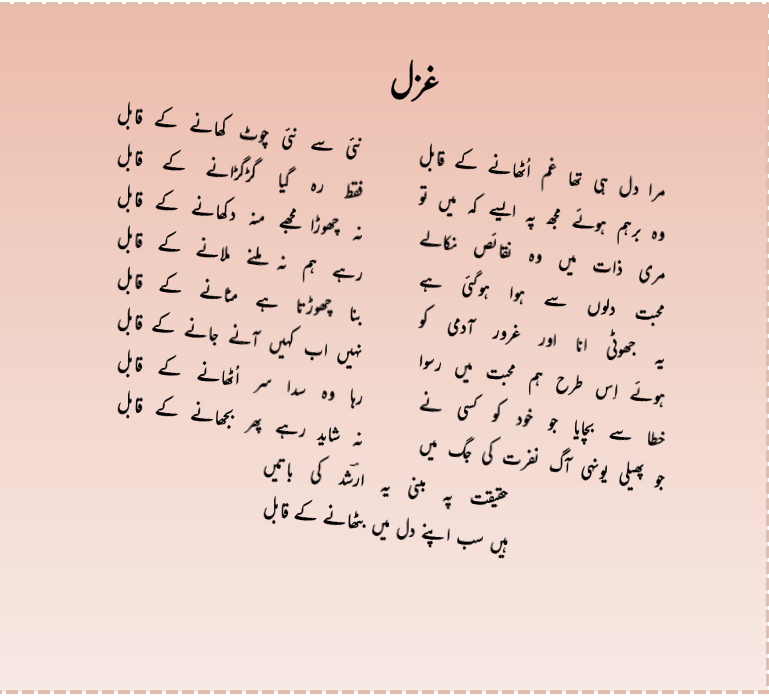 غزل
مرا دل ہی تھا غم اُٹھانے کے قابل
نئی سے نئی چوٹ کھانے کے قابل
وہ برہم ہوئے مجھ پہ ایسے کہ میں تو
فقط رہ گیا گڑگڑانے کے قابل
مری ذات میں وہ نقائص نکالے
نہ چھوڑا مجھے منہ دکھانے کے قابل
محبت دلوں سے ہوا ہوگئی ہے
رہے ہم نہ ملنے ملانے کے قابل
یہ جھوٹی انا اور غرور آدمی کو
بنا چھوڑتا ہے مٹانے کے قابل
ہوئے اِس طرح ہم محبت میں رسوا
نہیں اب کہیں آنے جانے کے قابل
خطا سے بچایا جو خود کو کسی نے
رہا وہ سدا سر اُٹھانے کے قابل
جو پھیلی یونہی آگ نفرت کی جگ میں
نہ شاید رہے پھر بجھانے کے قابل
حقیقت پہ مبنی یہ ارشدؔ کی باتیں
ہیں سب اپنے دل میں بٹھانے کے قابل